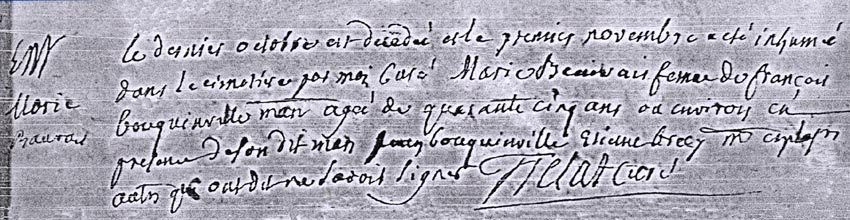 Ent
Marie
Beauvais
le dernier octobre est décédé et le premier novembre a été inhumé
dans le cimetiere par moi Curé Marie Beauvais femme de françois
bouquinville man agéé de quarante cinq ans ou environ en
presence de son dit mari jean bouquinville Etienne brecy
autres qui ont dit ne savoir signer